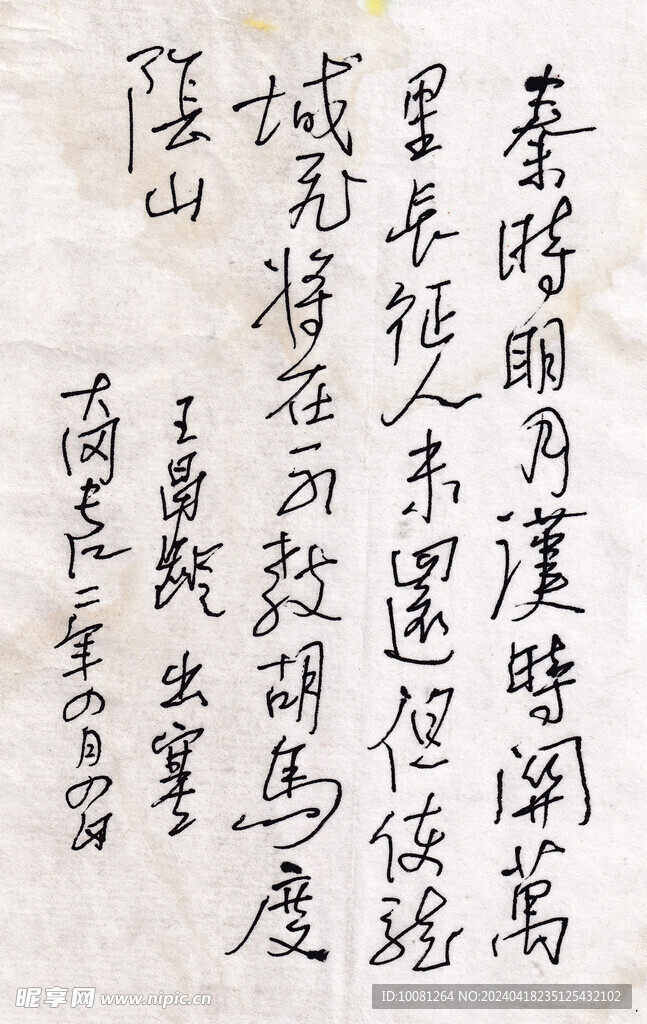 秦時明月漢時關萬
里長征人未還但使龍
城飛將在不教胡馬度
陰山
王昌齡 出塞
二年四月四日
昵享网 www.nipic.cn
ID:10081264 NO:20240418235125432102